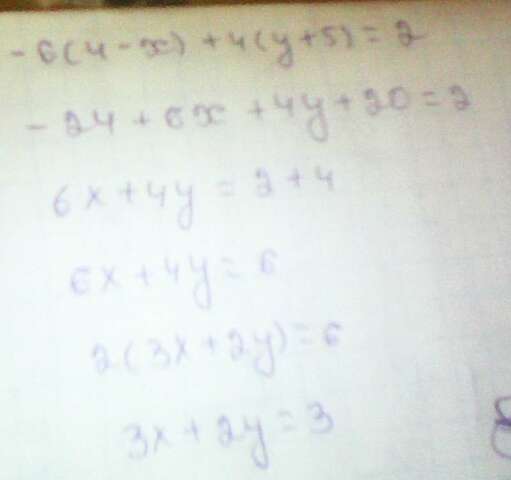 -6(4-x)+4(y+5)=2
-24+6x+4y+20=2
6x+4y=2+4
6x+4y=6
2(3x+2y)=6
3x+2y=3